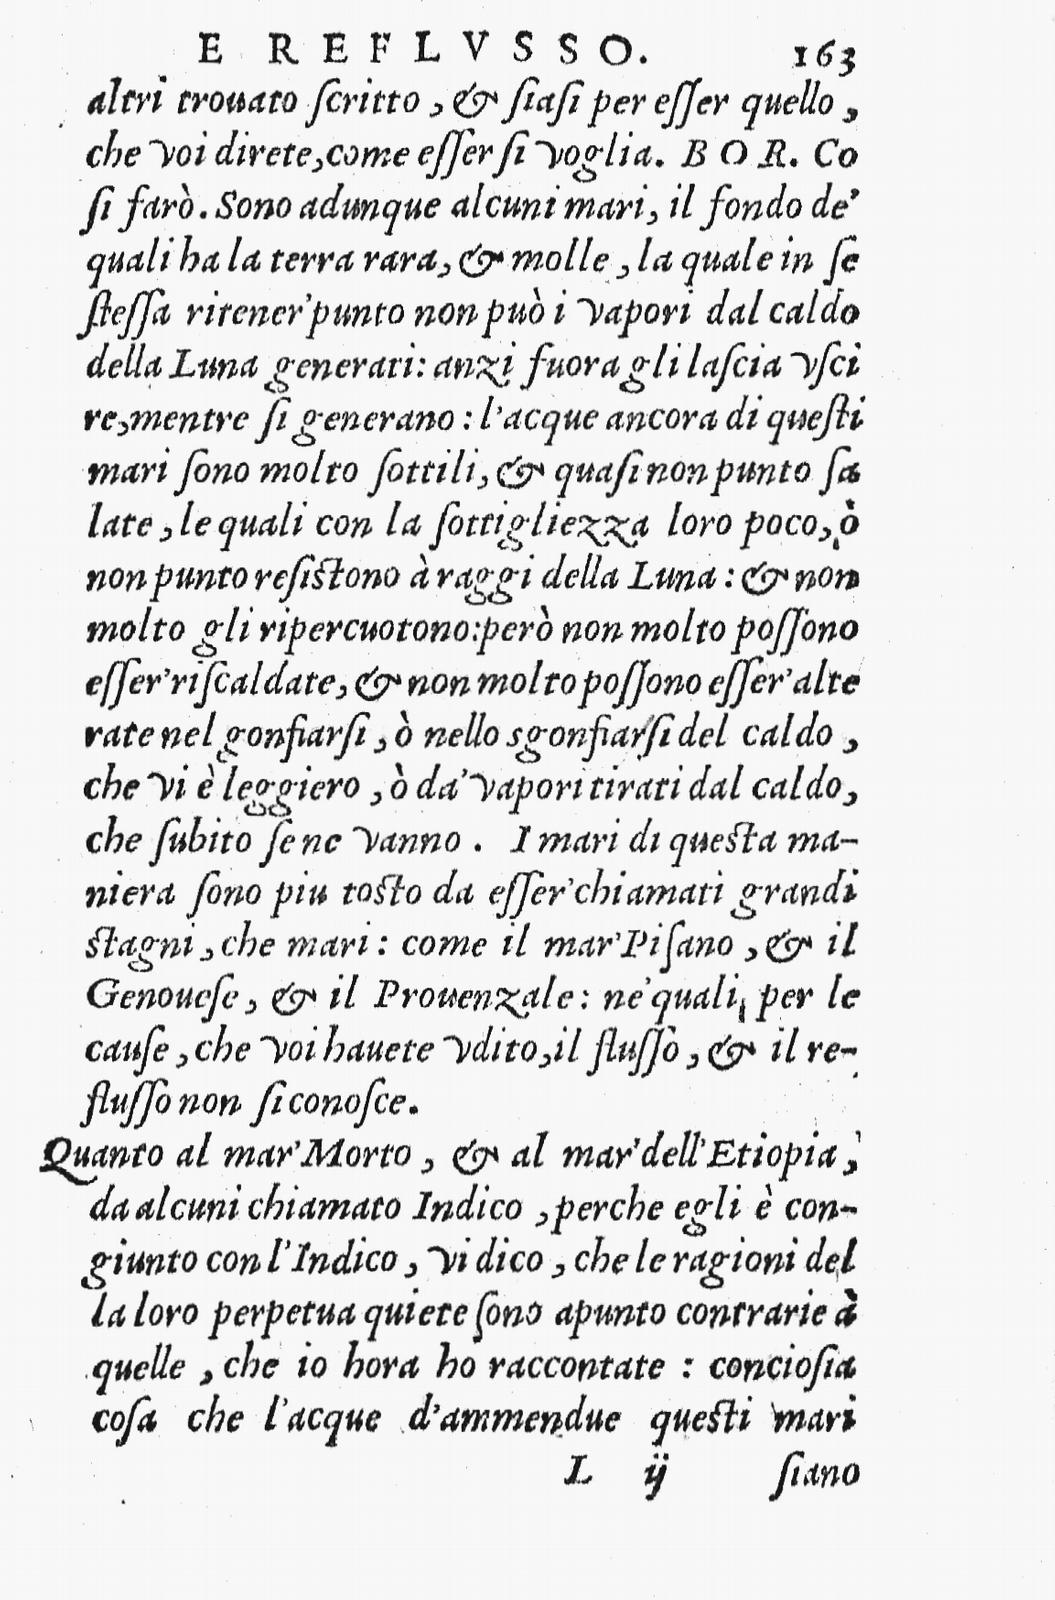 E REFLVSSO. 163
altri trouato ſcritto, & ſiaſi per eſſer quello,
che voi direte, come eſſer ſi voglia. BOR. Co
ſi farò. Sono adunque alcuni mari, il fondo de'
quali ha la terra rara, & molle, la quale in ſe
ſteſſa ritener' punto non può i vapori dal caldo
della Luna generati: anzi fuora gli laſcia vſci
re, mentre ſi generano: l'acque ancora di queſti
mari ſono molto ſottili, & quaſi non punto ſa
late, le quali con la ſottigliezza loro poco, ò
non punto reſiſtono à raggi della Luna: & non
molto gli ripercuotono: però non molto poſſono
eſſer' riſcaldate, & non molto poſſono eſſer' alte
rate nel gonfiarſi, ò nello sgonfiarſi del caldo,
che vi è leggiero, ò da' vapori tirati dal caldo,
che ſubito ſe ne vanno. I mari di queſta ma-
niera ſono piu toſto da eſſer' chiamati grandi
ſtagni, che mari: come il mar' Piſano, & il
Genoueſe, & il Prouenzale: ne' quali, per le
cauſe, che voi hauete vdito, il fluſſo, & il re-
fluſſo non ſi conoſce.
Quanto al mar' Morto, & al mar' dell' Etiopia,
da alcuni chiamato Indico, perche egli è con-
giunto con l'Indico, vi dico, che le ragioni del
la loro perpetua quiete ſono apunto contrarie à
quelle, che io hora ho raccontate: concioſia
coſa che l'acque d'ammendue queſti mari
L ij ſiano